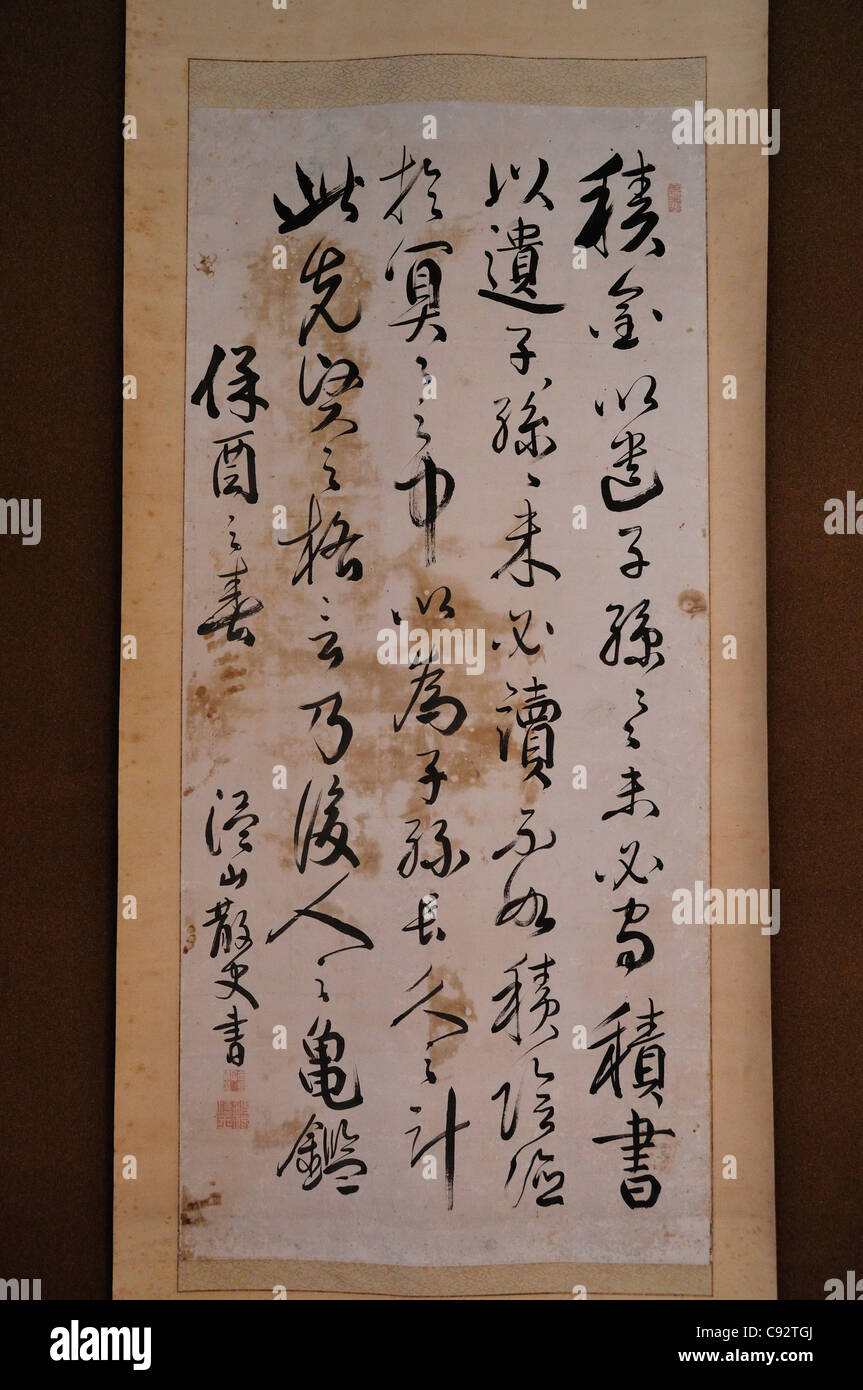 積金以遺子孫々々未必守積書
以遺子孫々々未必讀不如積陰德
於冥々之中以為子孫長久之計
此先賢之格言乃後人之亀鑑
酉之春
山散史書
alamy
alamy
alamy
Image ID: C92TGJ
www.alamy.com